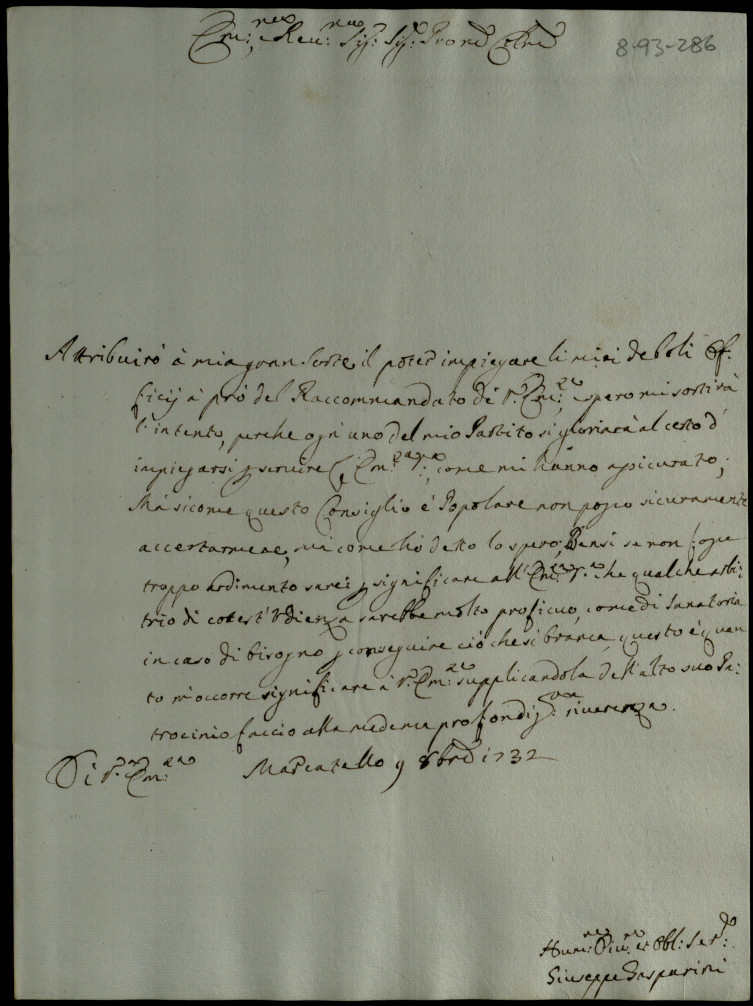 Em:mo e Reu:mo Sig: Sig: Pron Col
8-93-286
Attribuirò à mia gran sorte il poter impiegare li miei deboli Of:
ficij à prò del Raccommandato di V. Em:za, e spero mi sortirà
l'intento, perche ogn'uno del mio Partito si gloriarà al certo d'
impiegarsi p seruire l'Em:za V:, come mi hànno assicurato;
Mà sicome questo Consiglio è Popolare non posso sicuramente
accertarmene, mà come hò detto lo spero; Bensì se non fosse
troppo ardimento sarei p significare all'Em:za V:a che qualche arbi:
trio di cotest'Vdienza sarebbe molto proficuo, come di Sanatoria
in caso di bisogno p conseguire ciò che si brama, questo è quan
to m'occorre significare à V: Em:za supplicandola dell'alto suo Pa:
trocinio faccio alla medema profondiss:ma riuerenza.
Di V: Em:za Mercatello 9 8bre 1732
Hum:mo Diu:mo et Obl: Ser:
Giuseppe Gasparini